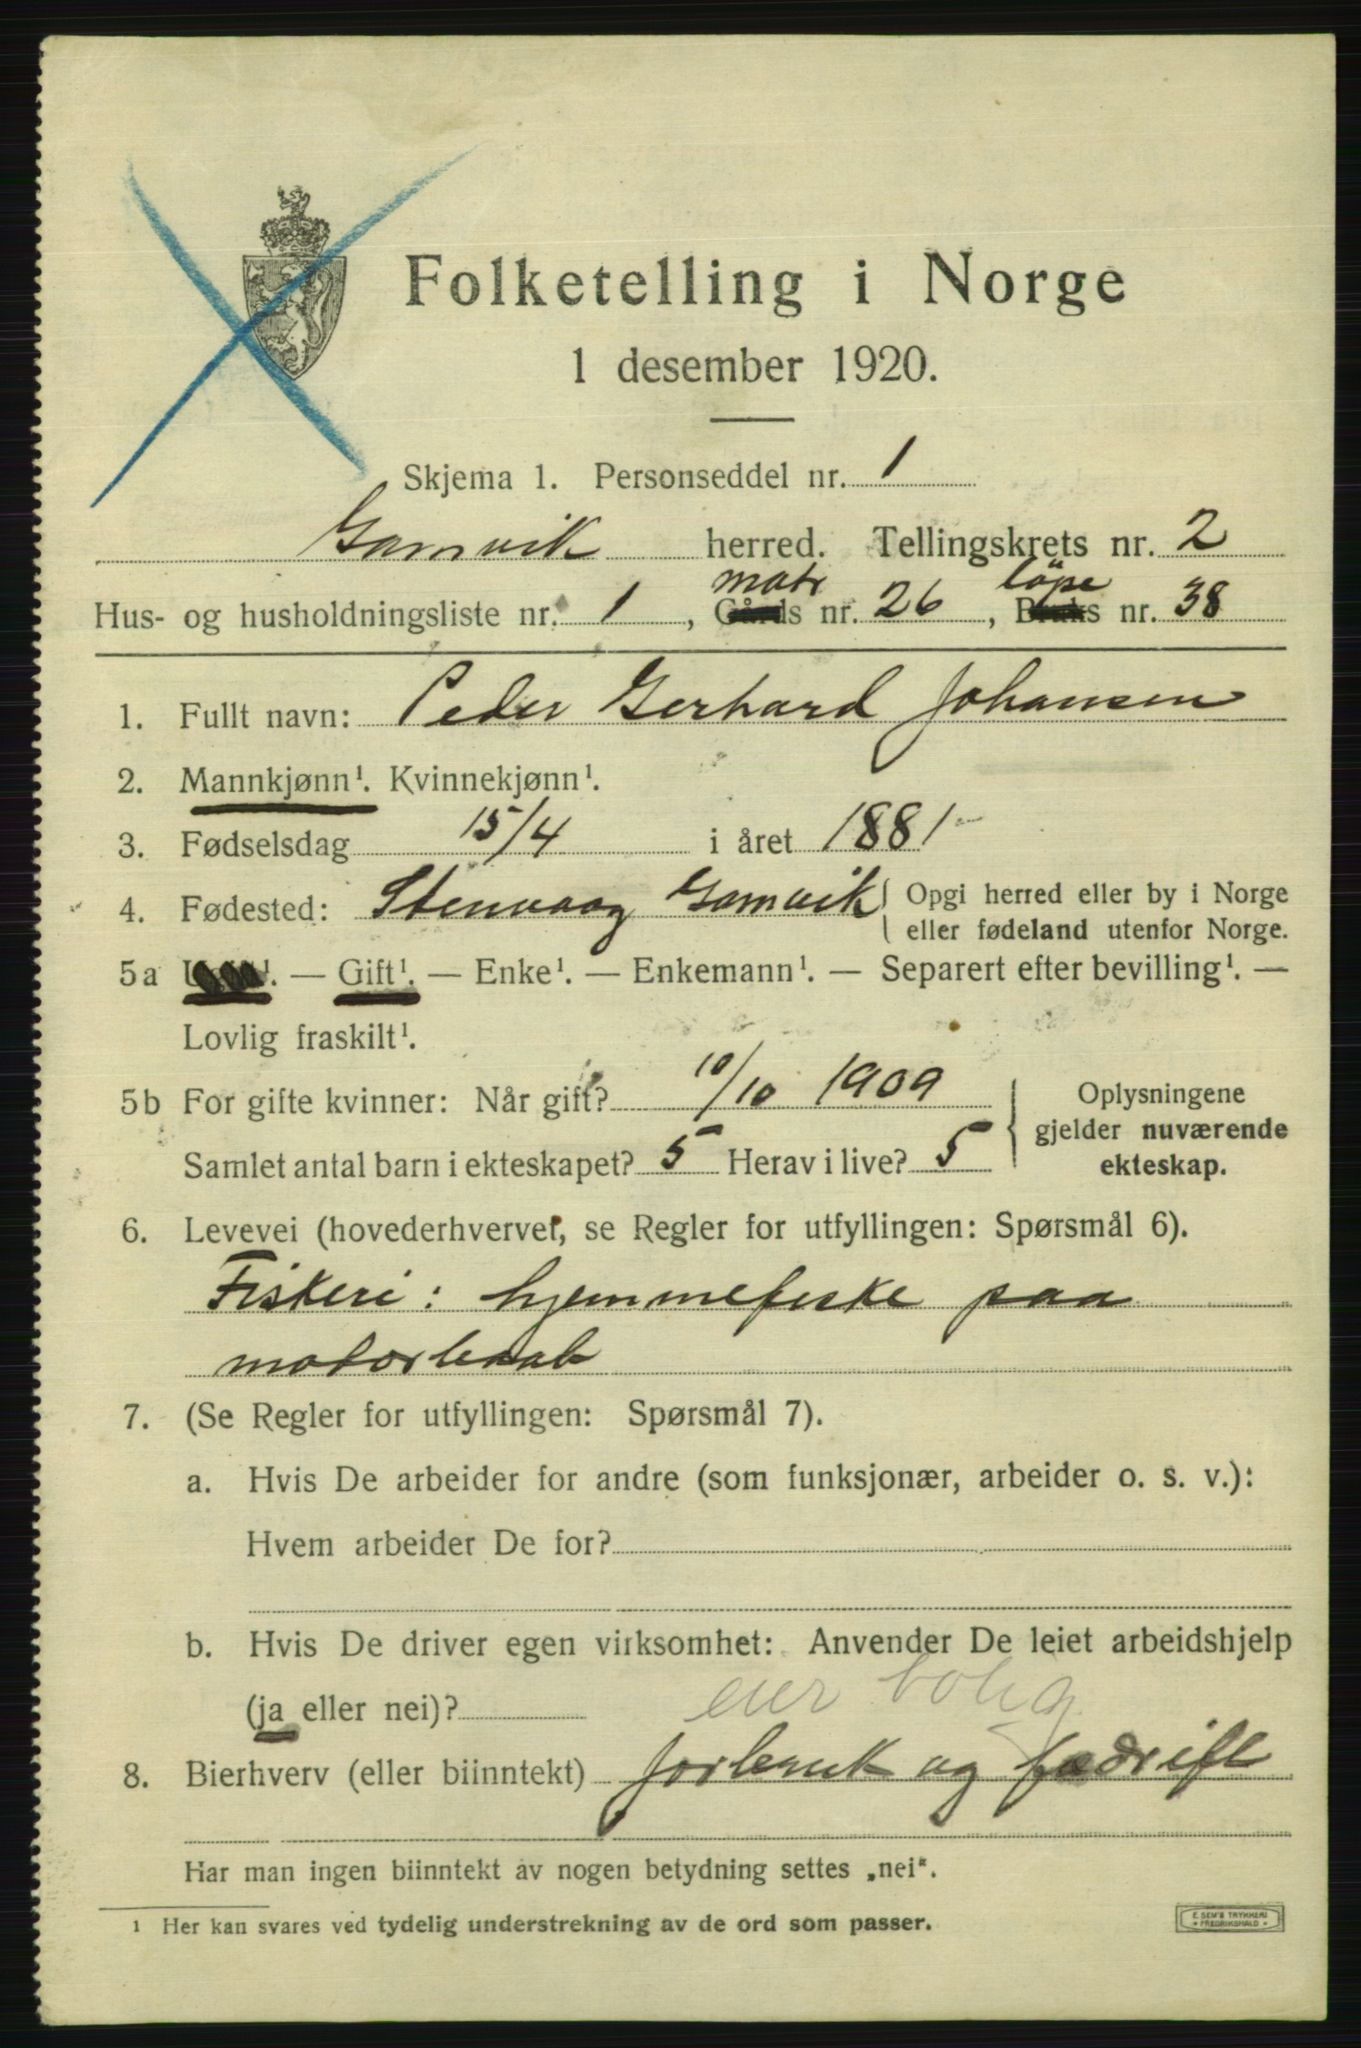 Folketelling i Norge
1 desember 1920.
Skjema 1. Personseddel nr. 1
Gamvik herred. Tellingskrets nr. 2
matr löpe
Hus- og husholdningsliste nr. 1, Gårds nr. 26, Bruks nr. 38
1. Fullt navn: Peder Gerhard Johansen
2. Mannkjønn¹. Kvinnekjønn¹.
3. Fødselsdag 15/4 i året 1881
4. Fødested: Stenvaag Gamvik Opgi herred eller by i Norge
eller fødeland utenfor Norge.
5a Ugift¹. — Gift¹. — Enke¹. — Enkemann¹. — Separert efter bevilling¹. —
Lovlig fraskilt¹.
5b For gifte kvinner: Når gift? 10/10 1909
Samlet antal barn i ekteskapet? 5 Herav i live? 5
Oplysningene
gjelder nuværende
ekteskap.
6. Levevei (hovederhvervet, se Regler for utfyllingen: Spørsmål 6).
Fiskeri: hjemmefiske paa
motorbaat
7. (Se Regler for utfyllingen: Spørsmål 7).
a. Hvis De arbeider for andre (som funksjonær, arbeider o. s. v.):
Hvem arbeider De for?
b. Hvis De driver egen virksomhet: Anvender De leiet arbeidshjelp
(ja eller nei)? eier bolig
8. Bierhverv (eller biinntekt) jorbruk og fædrift
Har man ingen biinntekt av nogen betydning settes „nei".
¹ Her kan svares ved tydelig understrekning av de ord som passer.
E. SEM'S TRYKKERI
FREDRIKSHALD